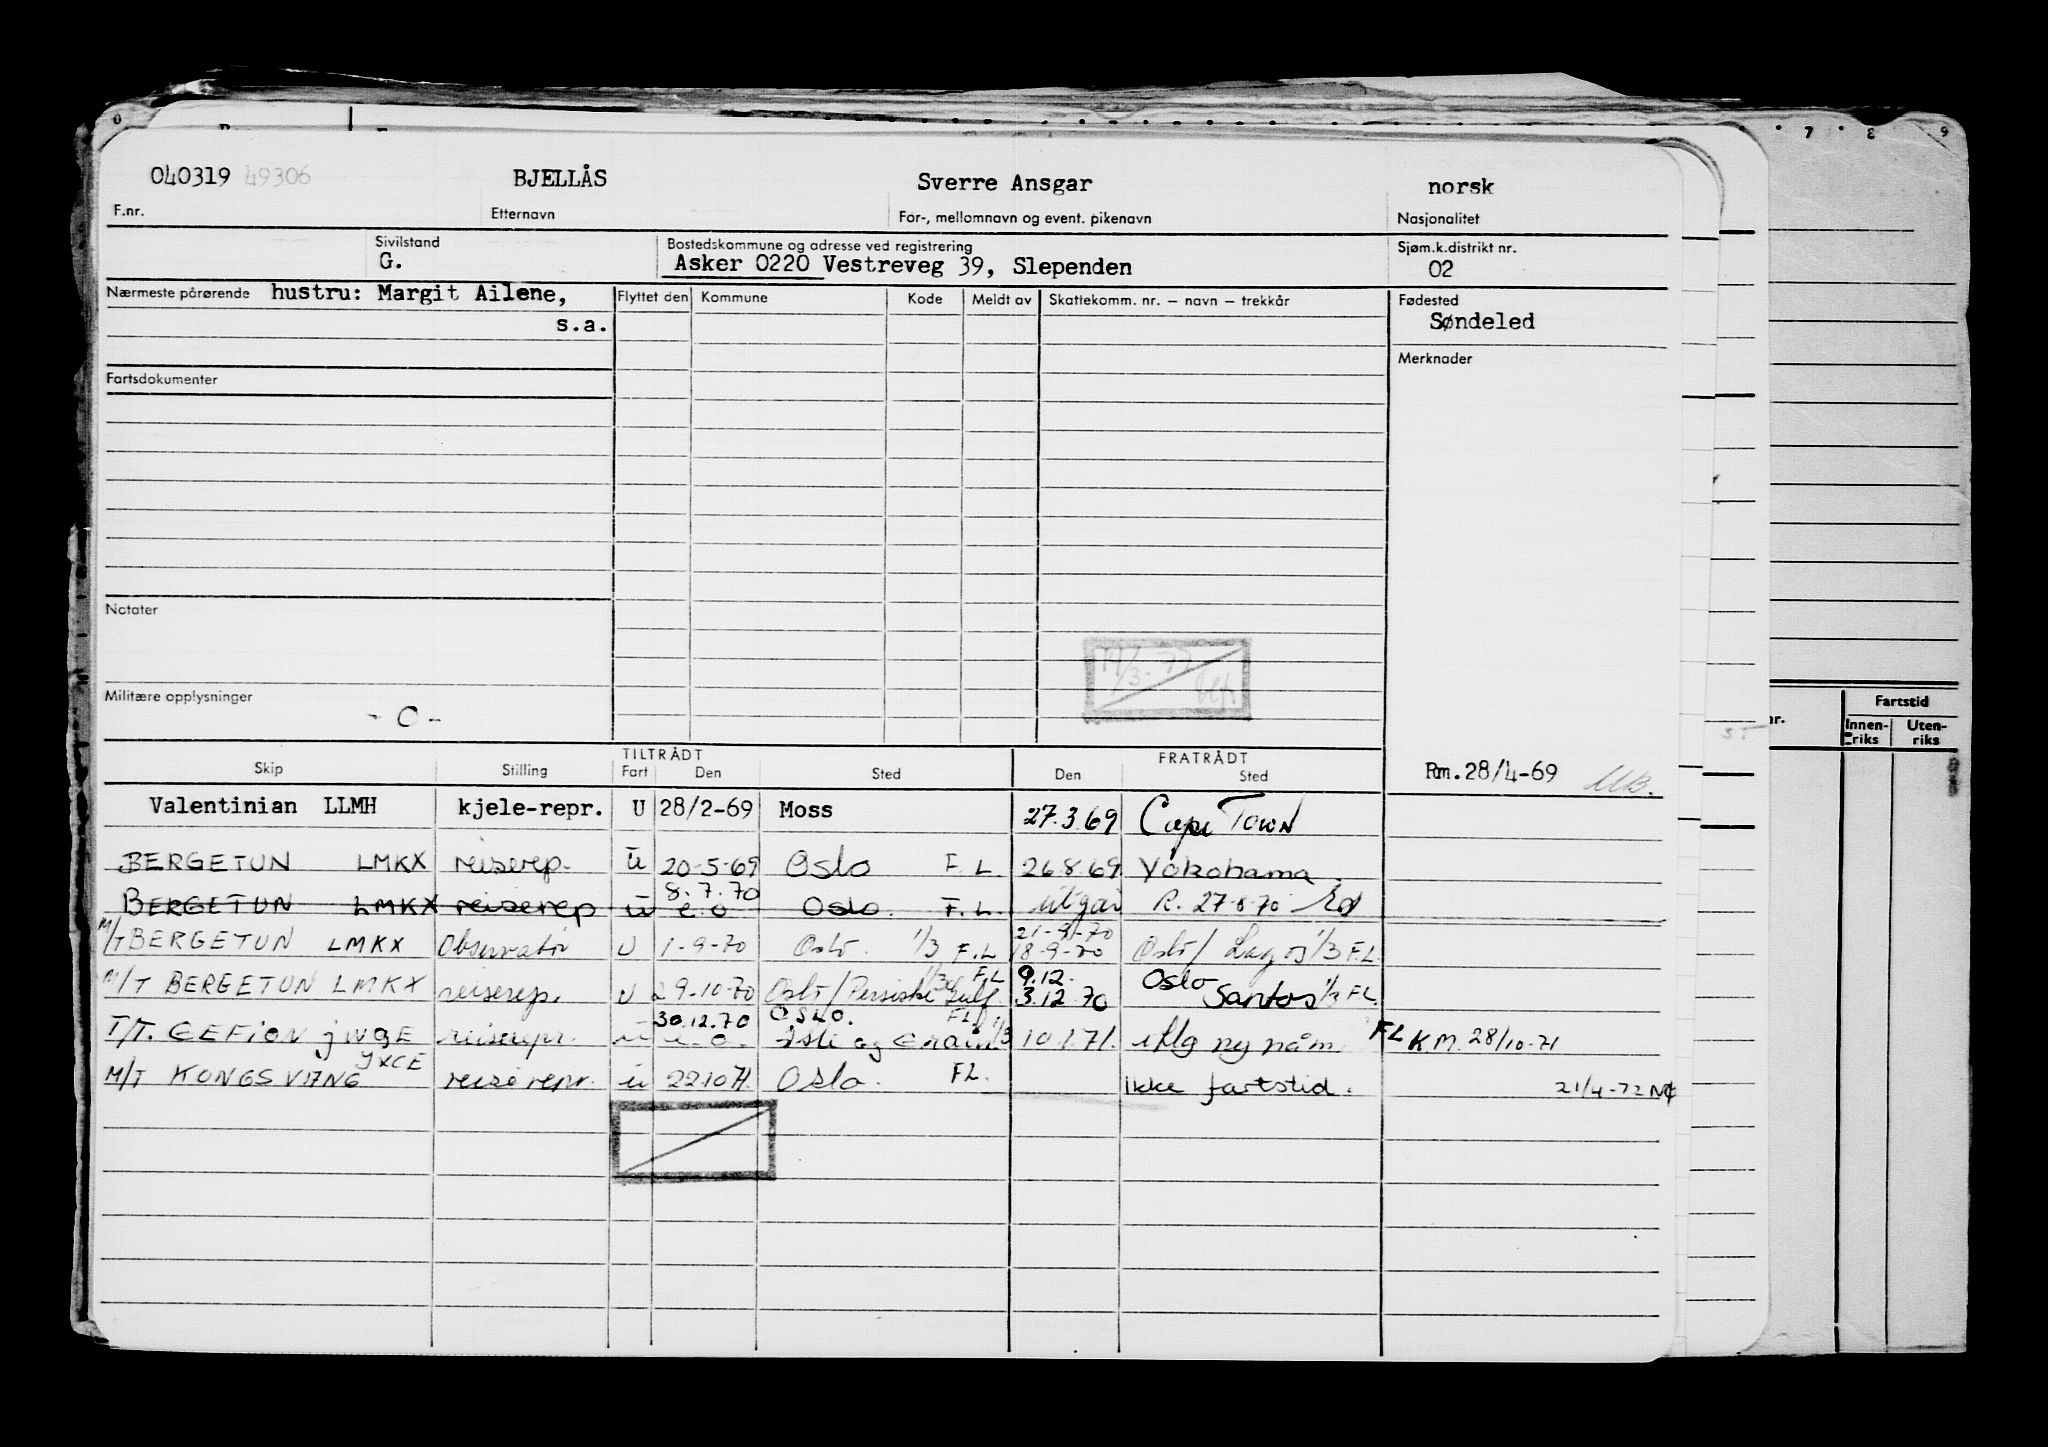 7 8 9
040319 49306 BJELLÅS Sverre Ansgar norsk
F.nr. Etternavn For-, mellomnavn og event. pikenavn Nasjonalitet
Sivilstand Bostedskommune og adresse ved registrering Sjøm.k.distrikt nr.
G. Asker 0220 Vestreveg 39, Slependen 02
Nærmeste pårørende hustru: Margit Ailene, Flyttet den Kommune Kode Meldt av Skattekomm. nr. – navn – trekkår Fødested
s.a. Søndeled
Merknader
Fartsdokumenter
Notater
Militære opplysninger
- O -
Fartstid
Innen-riks Uten-riks
TILTRÅDT FRATRÅDT
Skip Stilling Fart Den Sted Den Sted Rm. 28/4-69
Valentinian LLMH kjele-repr. U 28/2-69 Moss 27.3.69 Cape Town
BERGETUN LMKX reiserep. u 20-5-69 Oslo F.L. 26.8.69 Yokohama.
8.7.70
BERGETUN LMKX reiserep u e.o Oslo. F.L. utgår R. 27-8-70
21-9-70
M/T BERGETUN LMKX Observatør U 1-9-70 Oslo. 1/3 F.L 18-9-70 Oslo/ Lagos 1/3 F.L.
1/3 F.L 9.12. Oslo
M/T BERGETUN LMKX reiserep. U 29-10-70 Oslo/Persiske Gulf 3.12.70 Santos 1/3 FL.
30.12.70 OSLO. FL
T/T. GEFION JWQE reiserepr. u e.o. Isle og Grain 1/3 10.1.71. iflg ny påm. FL K.M. 28/10-71
JXCE
M/T KONGSVANG reiserepr. u 22.10.71. Oslo. FL. ikke fartstid. 21/4-72